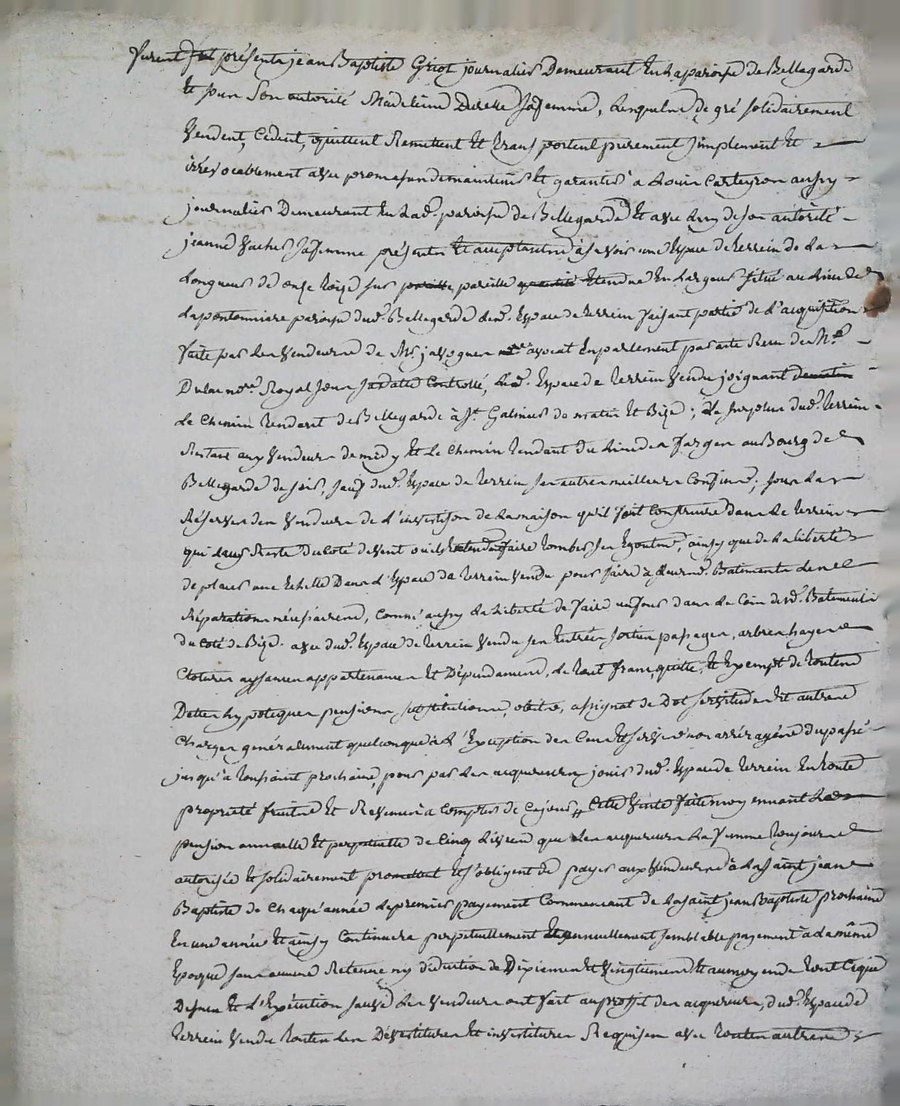 Furent présents jean Baptiste Griot journalier Demeurant En La paroisse de Bellegarde
Et sous Son autorité Madeleine sa femme, Lesquels de gré solidairement
Vendent, Cedent, quittent Remettent Et transportent purement simplement Et
irrévocablement avec promesse de maintenir Et garantir à aussy
journalier Demeurant En Lad. paroisse de Bellegarde Et avec Luy de son autorité
jeanne sa femme présents Et acceptants à sçavoir une Espace de terrein de La
Longueur de onze toises sur pareille Etendue En Largeur situé au Lieu de
paroisse dud. Bellegarde Led. Espace de terrein faisant partie de L'acquisition
faite par Les Vendeurs de Mr. avocat En parlement par acte Reçu de Me.
no.re Royal sous sa datte Controllé, Led. Espace de terrein Vendu joignant
Le Chemin tendant de Bellegarde à St. Galmier de matin Et Bize; Le surplus dud. terrein
Restant aux Vendeurs de midy Et Le Chemin tendant du Lieu de au Bourg de
Bellegarde de soir, sauf dud. Espace de terrein ses autres meilleurs Confins; sous La
Réserve des Vendeurs de de La maison qu'il font Construire dans Le terrein
qui Reste du Coté de Vent faire tomber ses Egouts, ainsy que de La liberté
de placer une Echelle Dans L'Espace de terrein Vendu pour faire Batiments Les
Réparations nécessaires, comme aussy La Liberté de faire dans Le Coin dud. Batiment
du Coté de Bize. avec dud. Espace de terrein Vendu ses Entrées sorties passages, arbres hayes
Clotures aysances appartenances Et Dépendances, Le tout franc, quitte, Et Exempt de toutes
Dettes hypoteques pensions substitutions, obits, assignat de Dot servitudes Et autres
Charges généralement quelconque à L'Exception des Cens Et servis non arréragés du passé
jusqu'à toussaint prochaine, pour par Les acquereurs jouir dud. Espace de terrein En toute
propriété fruits Et Revenus à Compter de Ce jour, Cette Vente faite moyennant La
pension annuelle Et perpetuelle de Cinq Livres que Les acquereurs La femme toujours
autorisée Et solidairement promettent Et s'obligent de payer aux Vendeurs à La saint jean
Baptiste de Chaque année Le premier payement Commencant de La saint jean Baptiste prochaine
En une année Et ainsy Continuera perpetuellement annuellement semblable payement à La même
Epoque sans aucune Retenue ny déduction de Dixiemes Et Vingtiemes Et au moyen de tout Ce que
Dessus Et L'Exécution sauve Les Vendeurs ont fait au profit des acquereurs, dud. Espace de
terrein Vendu toutes Les Dévestitures Et investitures Requises avec toutes autres